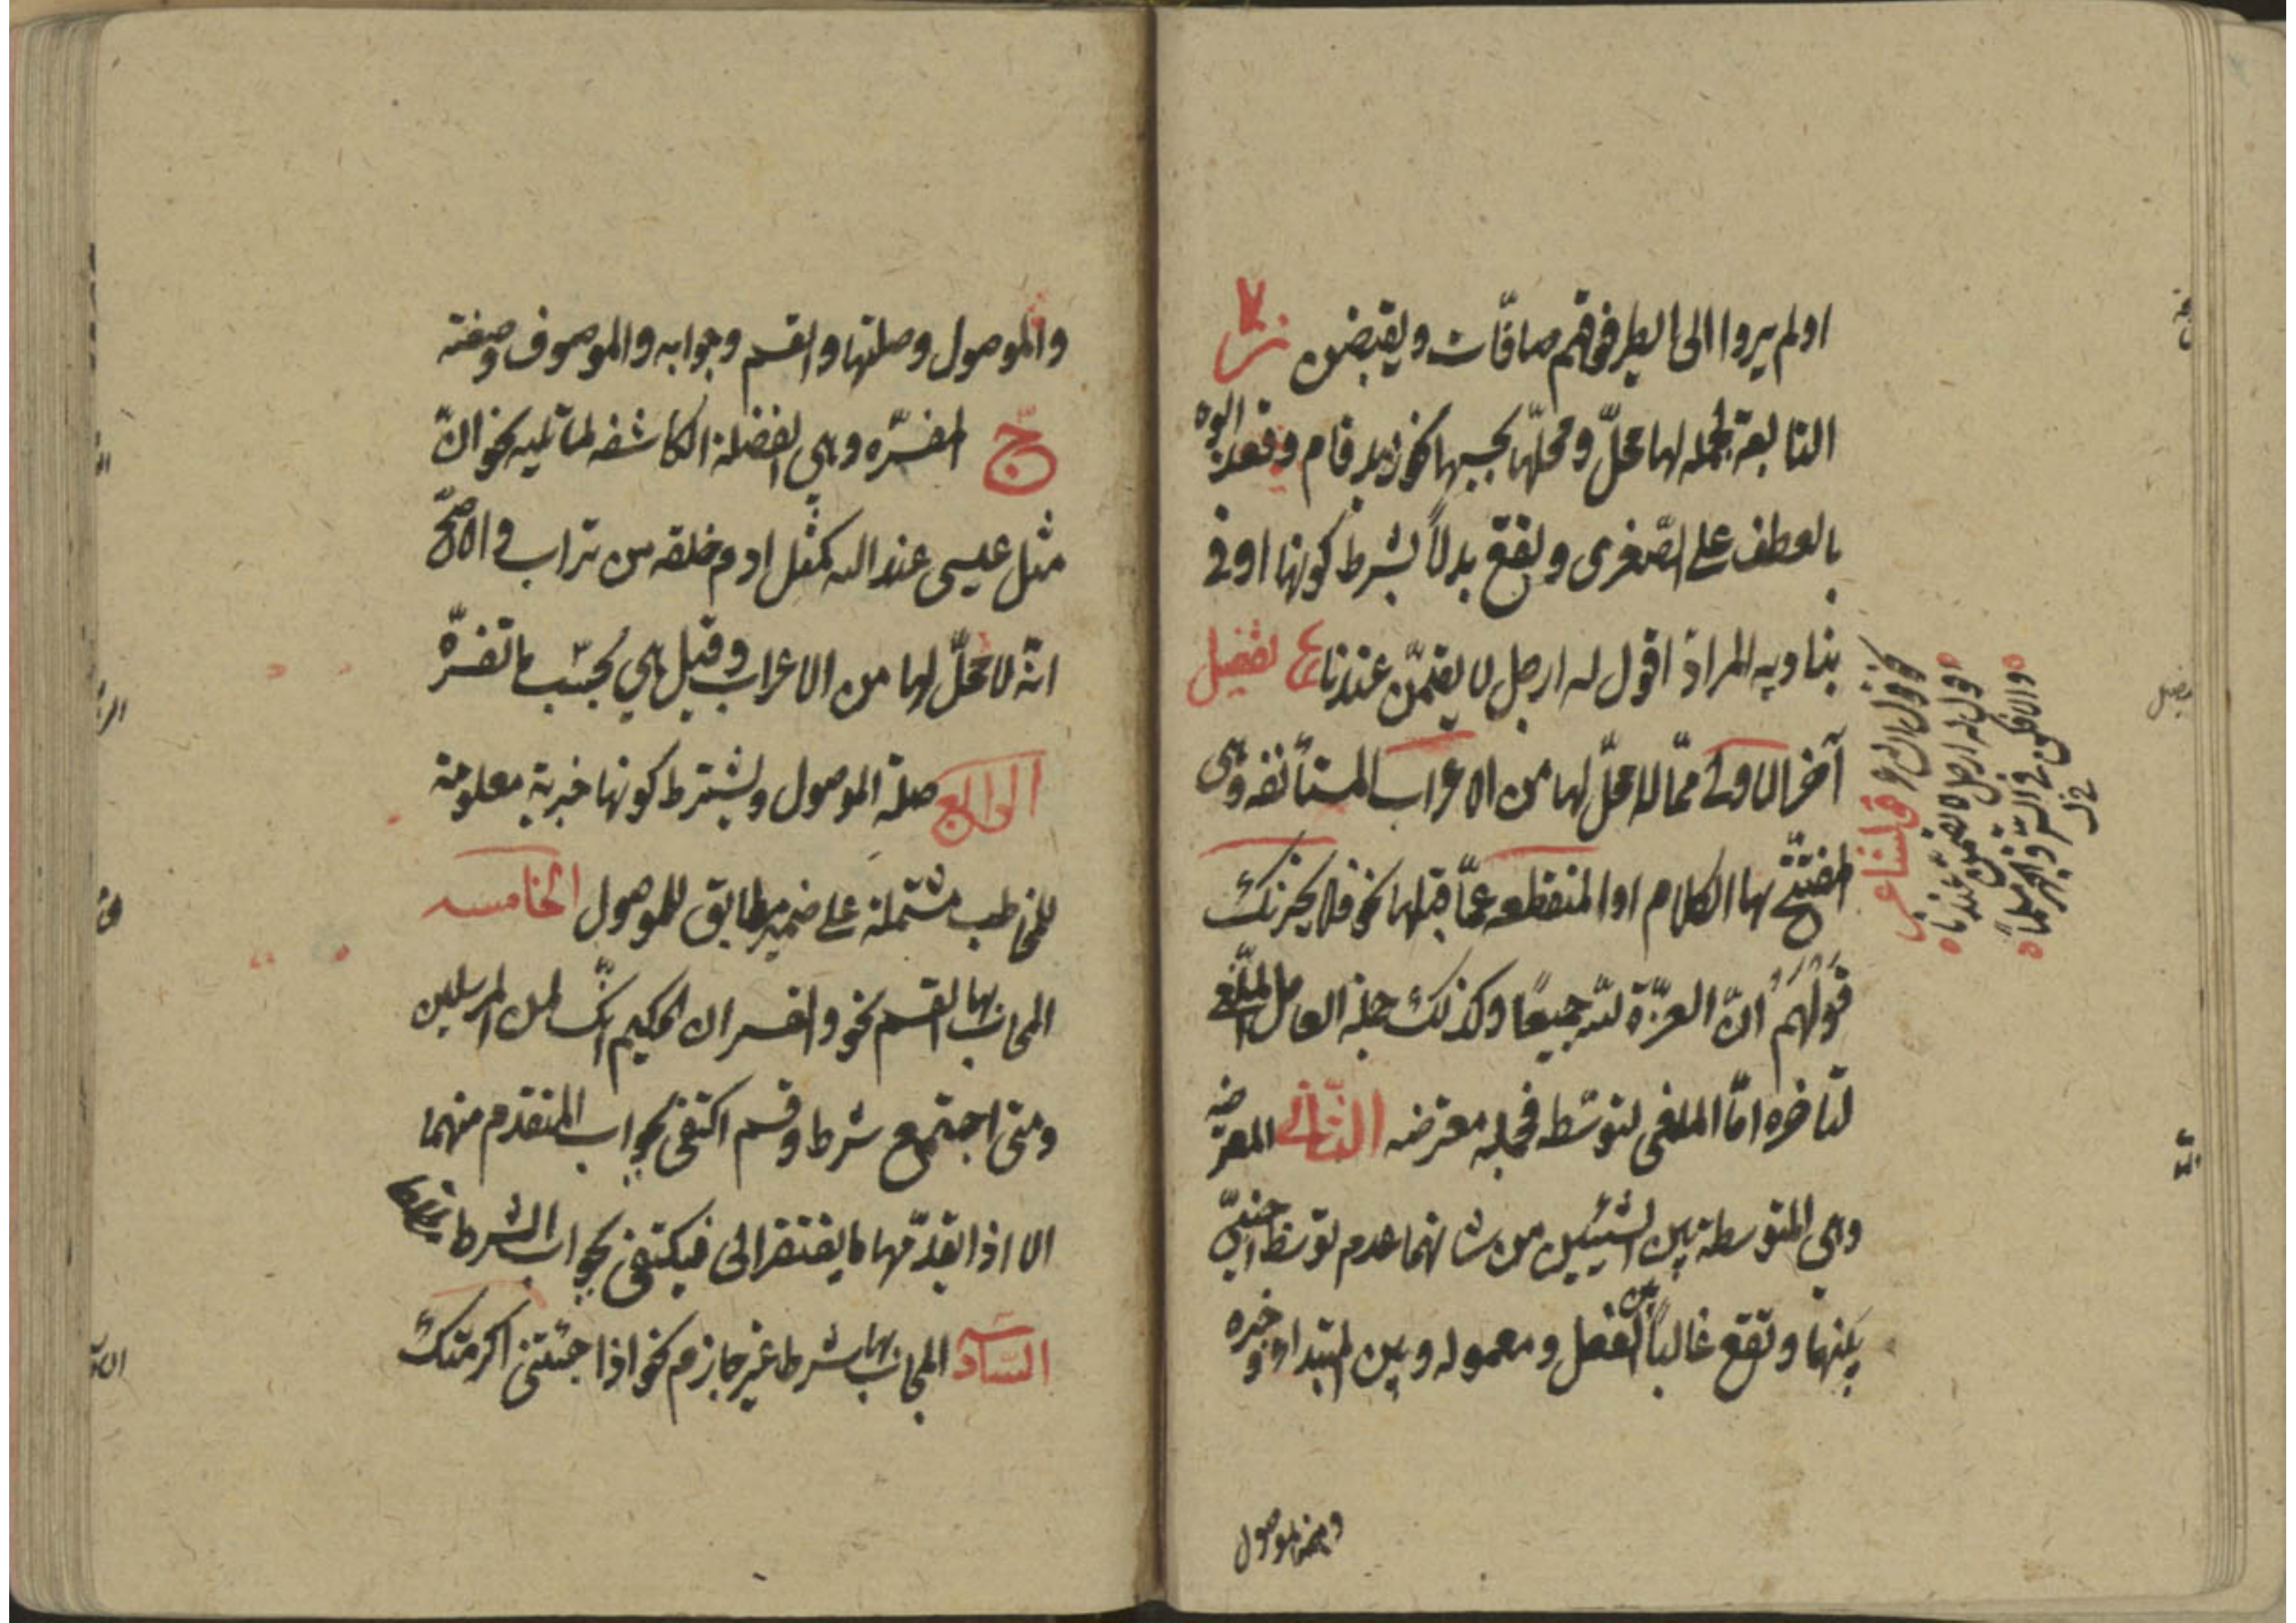 اولم يروا الى الطير فوقهم صافّات ويقبضن ز
التابعة لجملة لها محلّ ومحلّها بحسبها نحو زيد قام وقعد ابوه
بالعطف على الصّغرى وتقع بدلاً بشرط كونها اوفى
بتادية المراد اقول له ارحل لا تقيمنّ عندنا تفصيل
آخر الاولى ممّا لا محلّ لها من الاعراب المستأنفه وهى
المفتتح بها الكلام او المنقطعه عمّا قبلها نحو فلا يحزنك
قولهم انّ العزّة لله جميعًا وكذلك جملة العامل الملغى
لتأخره امّا الملغى لتوسّطه فجمله معترضه الثّانى المعترضه
وهى المتوسطة بين الشيئين من شانهما عدم توسّط اجنبىّ
بينهما وتقع غالباً بين الفعل ومعموله وبين المبتدا وخبره
وبين الموصول
قول الشاعر
اقول له ارحل لا تقيمنّ عندنا
والا فكن فى السّر والجهر مسلماً
والموصول وصلتها والقسم وجوابه والموصوف وصفته
ج المفسّره وهى الفضلة الكاشفه لما تليه نحو انّ
مثل عيسى عند الله كمثل ادم خلقه من تراب والاصحّ
انّه لا محلّ لها من الاعراب وقيل هى بحسب ما تفسّره
الرابع صلة الموصول ويشترط كونها خبرية معلومة
للمخاطب مشتملة على ضمير مطابق للموصول الخامسه
المجاب بها القسم نحو والقران الحكيم انّك لمن المرسلين
ومتى اجتمع شرط وقسم اكتفى بجواب المتقدم منهما
الا اذا تقدّمهما ما يفتقر الى فيكتفى بجواب الشرط
السّادسه المجاب بها شرط غير جازم نحو اذا جئتنى اكرمتك